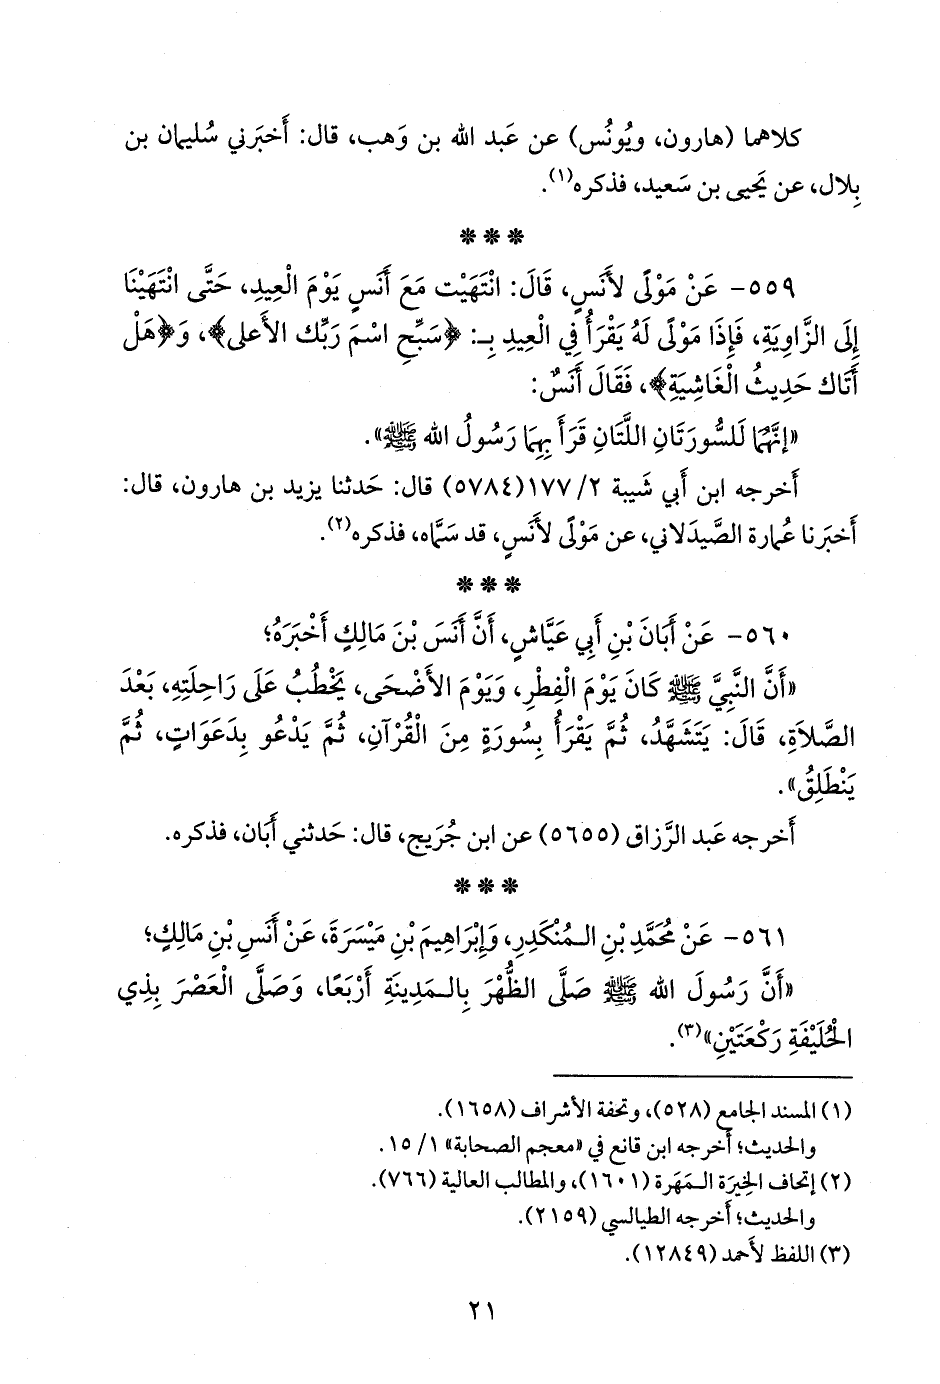 كلاهما (هارون، ويُونُس) عن عَبد الله بن وَهب، قال: أَخبَرني سُليمان بن
بِلال، عن يَحيى بن سَعيد، فذكره(١).
***
٥٥٩- عَنْ مَوْلًى لأَنَسٍ، قَالَ: انْتَهَيْت مَعَ أَنَسٍ يَوْمَ الْعِيدِ، حَتَّى انْتَهَيْنَا
إِلَى الزَّاوِيَةِ، فَإِذَا مَوْلًى لَهُ يَقْرَأُ فِي الْعِيدِ بِـ: ﴿سَبِّحِ اسْمَ رَبِّك الأَعلى﴾، وَ﴿هَلْ
أَتَاك حَدِيثُ الْغَاشِيَةِ﴾، فَقَالَ أَنَسٌ:
«إِنَّهُمَا لَلسُّورَتَانِ اللَّتَانِ قَرَأَ بِهِمَا رَسُولُ الله ﷺ».
أَخرجه ابن أَبي شَيبة ٢/ ١٧٧(٥٧٨٤) قال: حَدثنا يزيد بن هارون، قال:
أَخبَرنا عُمارة الصَّيدَلاني، عن مَوْلًى لأَنَسٍ، قد سَمَّاه، فذكره(٢).
***
٥٦٠- عَنْ أَبَانَ بْنِ أَبِي عَيَّاشٍ، أَنَّ أَنَسَ بْنَ مَالِكٍ أَخْبَرَهُ؛
«أَنَّ النَّبِيَّ ﷺ كَانَ يَوْمَ الْفِطْرِ، وَيَوْمَ الأَضْحَى، يَخْطُبُ عَلَى رَاحِلَتِهِ، بَعْدَ
الصَّلاَةِ، قَالَ: يَتَشَهَّدُ، ثُمَّ يَقْرَأُ بِسُورَةٍ مِنَ الْقُرْآنِ، ثُمَّ يَدْعُو بِدَعَوَاتٍ، ثُمَّ
يَنْطَلِقُ».
أَخرجه عَبد الرَّزاق (٥٦٥٥) عن ابن جُرَيج، قال: حَدثني أَبَان، فذكره.
***
٥٦١- عَنْ مُحَمَّدِ بْنِ الـمُنْكَدِرِ، وَإِبْرَاهِيمَ بْنِ مَيْسَرَةَ، عَنْ أَنَسِ بْنِ مَالِكٍ؛
«أَنَّ رَسُولَ الله ﷺ صَلَّى الظُّهْرَ بِالـمَدِينَةِ أَرْبَعًا، وَصَلَّى الْعَصْرَ بِذِي
الْحُلَيْفَةِ رَكْعَتَيْنِ»(٣).
(١) المسند الجامع (٥٢٨)، وتحفة الأشراف (١٦٥٨).
والحديث؛ أَخرجه ابن قانع في «معجم الصحابة» ١/ ١٥.
(٢) إتحاف الخِيرَة الـمَهَرة (١٦٠١)، والمطالب العالية (٧٦٦).
والحديث؛ أَخرجه الطيالسي (٢١٥٩).
(٣) اللفظ لأَحمد (١٢٨٤٩).
٢١